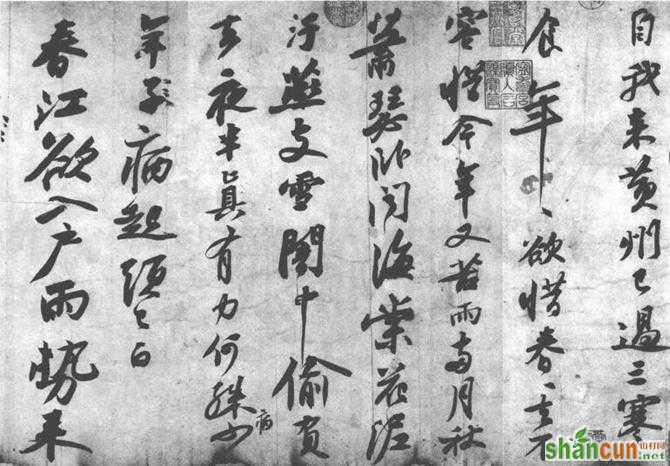 自我來黃州已過三寒
食年〻欲惜春〻去不
容惜今年又苦雨兩月秋
蕭瑟卧聞海棠花泥
汙燕支雪闇中偷負
去夜半真有力何殊少
病
年子病起頭已白
春江欲入户雨勢來
shancun
.net